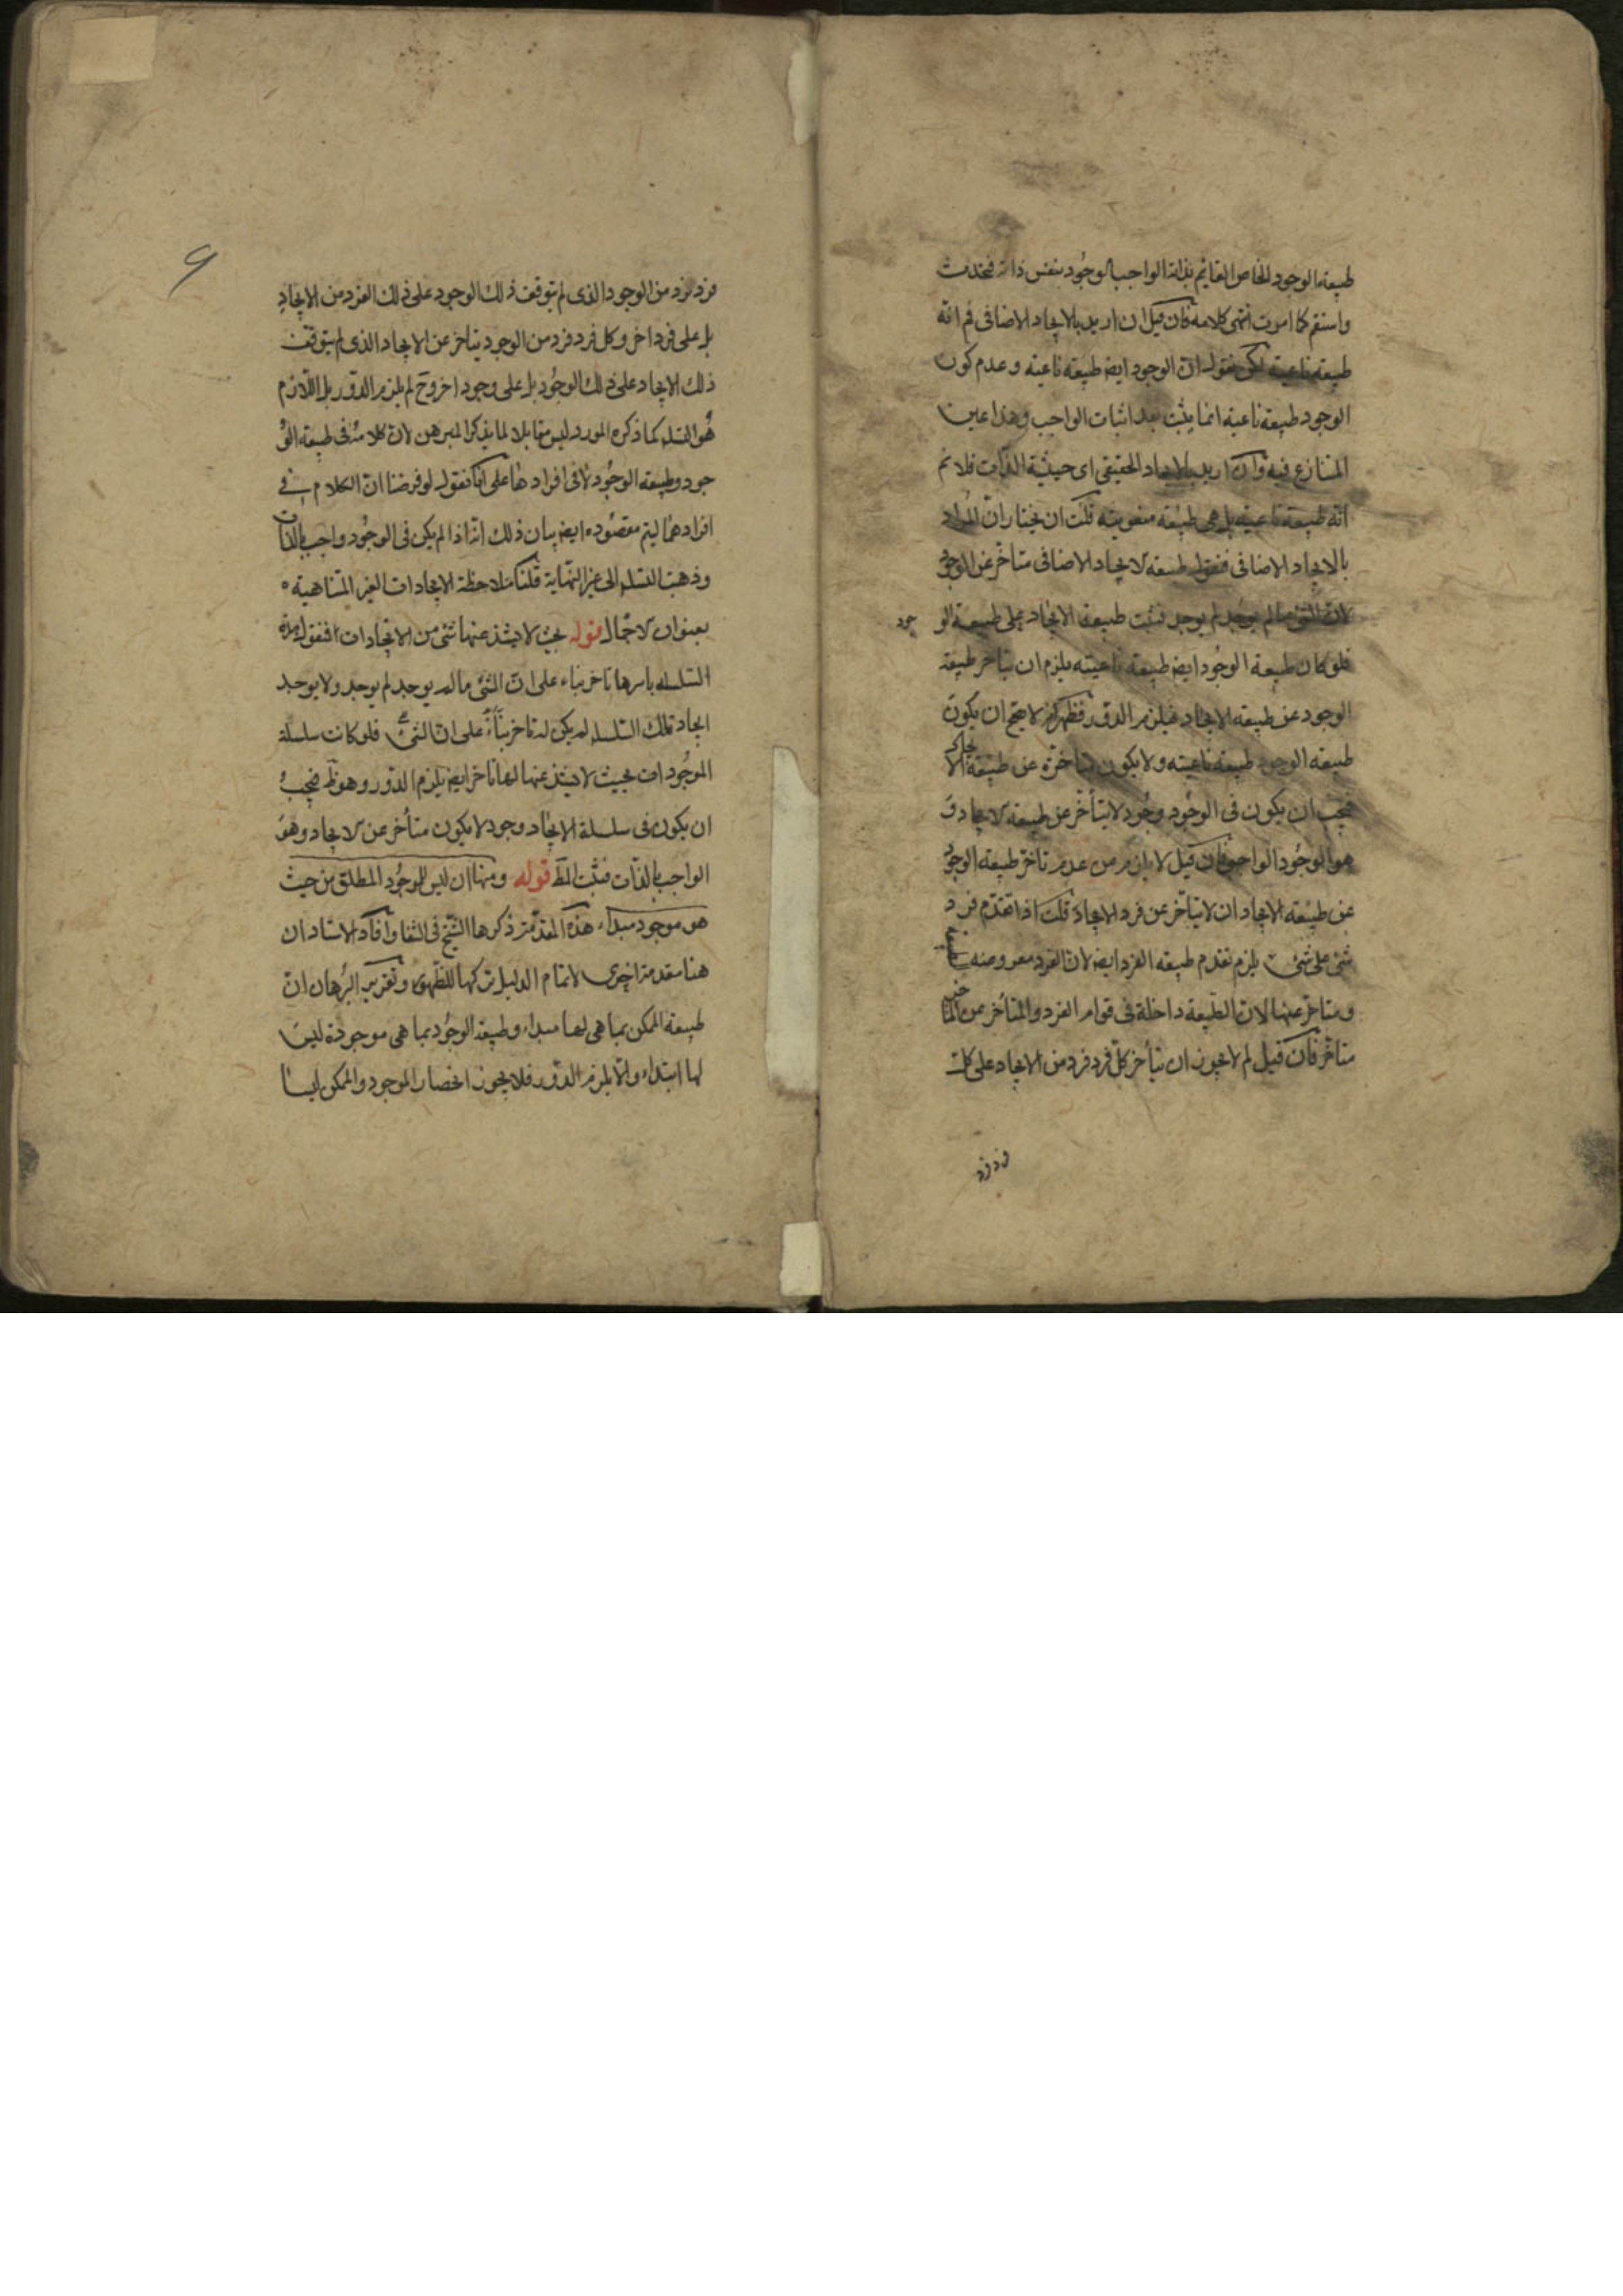 طبيعة الوجود الخاص القايم بذاته الواجب الوجود بنفس ذاته فتحدث
واستقم كما امرت انتهى كلامه فان قيل ان اريد بالايجاد الاضافى فم انه
طبيعة ناعتية لكن نقول ان الوجود ايض طبيعة ناعتية وعدم كون
الوجود طبيعة ناعتية انما يثبت بعد اثبات الواجب وهذا عين
المتنازع فيه وان اريد بالايجاد الحقيقى اى حيثية الذات فلا نم
انه طبيعة ناعتية بل هى طبيعة منعوتية قلت ان نختار ان المراد
بالايجاد الاضافى فنقول طبيعة الايجاد الاضافى متاخر عن الوجود
لان الشئ ما لم يوجد لم يوجد فثبت طبيعة الايجاد على طبيعة الو
جود
فلو كان طبيعة الوجود ايض طبيعة ناعتيته يلزم ان يتاخر طبيعة
الوجود عن طبيعة الايجاد فيلزم الدور فظهر لا يصح ان يكون
طبيعة الوجود طبيعة ناعتيته ولا يكون متاخرة عن طبيعة الايجاد
فيجب ان يكون فى الوجود وجود لا يتأخر عن طبيعة الايجاد و
هو الوجود الواجب فان قيل لا يلزم من عدم تاخر طبيعة الوجود
عن طبيعة الايجاد ان لا يتأخر عن فرد الايجاد قلت اذا تقدم فرد
شئ على شئ يلزم تقدم طبيعة الفرد ايض لان الفرد معروضه
ومتاخر عنها لان الطبيعة داخلة فى قوام الفرد والمتأخر عن المتاخر
متاخر فان قيل لم لا يجوز ان يتأخر كل فرد فرد من الايجاد على كل
فرد فرد
فرد فرد من الوجود الذى لم يتوقف ذلك الوجود على ذلك الفرد من الايجاد
بل على فرد اخر وكل فرد فرد من الوجود يتاخر عن الايجاد الذى لم يتوقف
ذلك الايجاد على ذلك الوجود بل على وجود اخر وح لم يلزم الدور بل اللازم
هو التسلسل كما ذكره المورد ليس مقابلا لما يذكر المبرهن لان كلامه فى طبيعة الو
جود وطبيعة الوجود لا فى افرادها على انا نقول لو فرضنا ان الكلام فى
افرادهما ليتم مقصوده ايض بيان ذلك انه اذا لم يكن فى الوجود واجب بالذات
وذهبت التسلسل الى غير النهاية قلنا ملاحظة الايجادات الغير المتناهية
بعنوان الاجمال قوله بحيث لا يشذ عنها شئ من الايجادات فنقول هذه
السلسلة باسرها تاخر بناء على ان الشئ ما لم يوجد لم يوجد ولا يوجد
ايجاد تلك السلسلة لم يكن له تاخر بناء على ان الشئ فلو كانت سلسلة
الموجودات بحيث لا يشذ عنها لها تاخر ايض يلزم الدور وهو ظ فيجب
ان يكون فى سلسلة الايجاد وجود لا يكون متأخر عن الايجاد وهو
الواجب بالذات فثبت المط قوله ومنها ان ليس للوجود المطلق من حيث
هو موجود مبداء هذه المقدمة ذكرها الشيخ فى الشفا وافاد الاستاد ان
هنا مقدمة اخرى لاتمام الدليل تركها للظهور وتقرير البرهان ان
طبيعة الممكن بما هى لها مبداء وطبيعة الوجود بما هى موجودة ليس
لها ابتداء والا يلزم الدور فلا يجوز انحصار الموجود والممكن ليسا